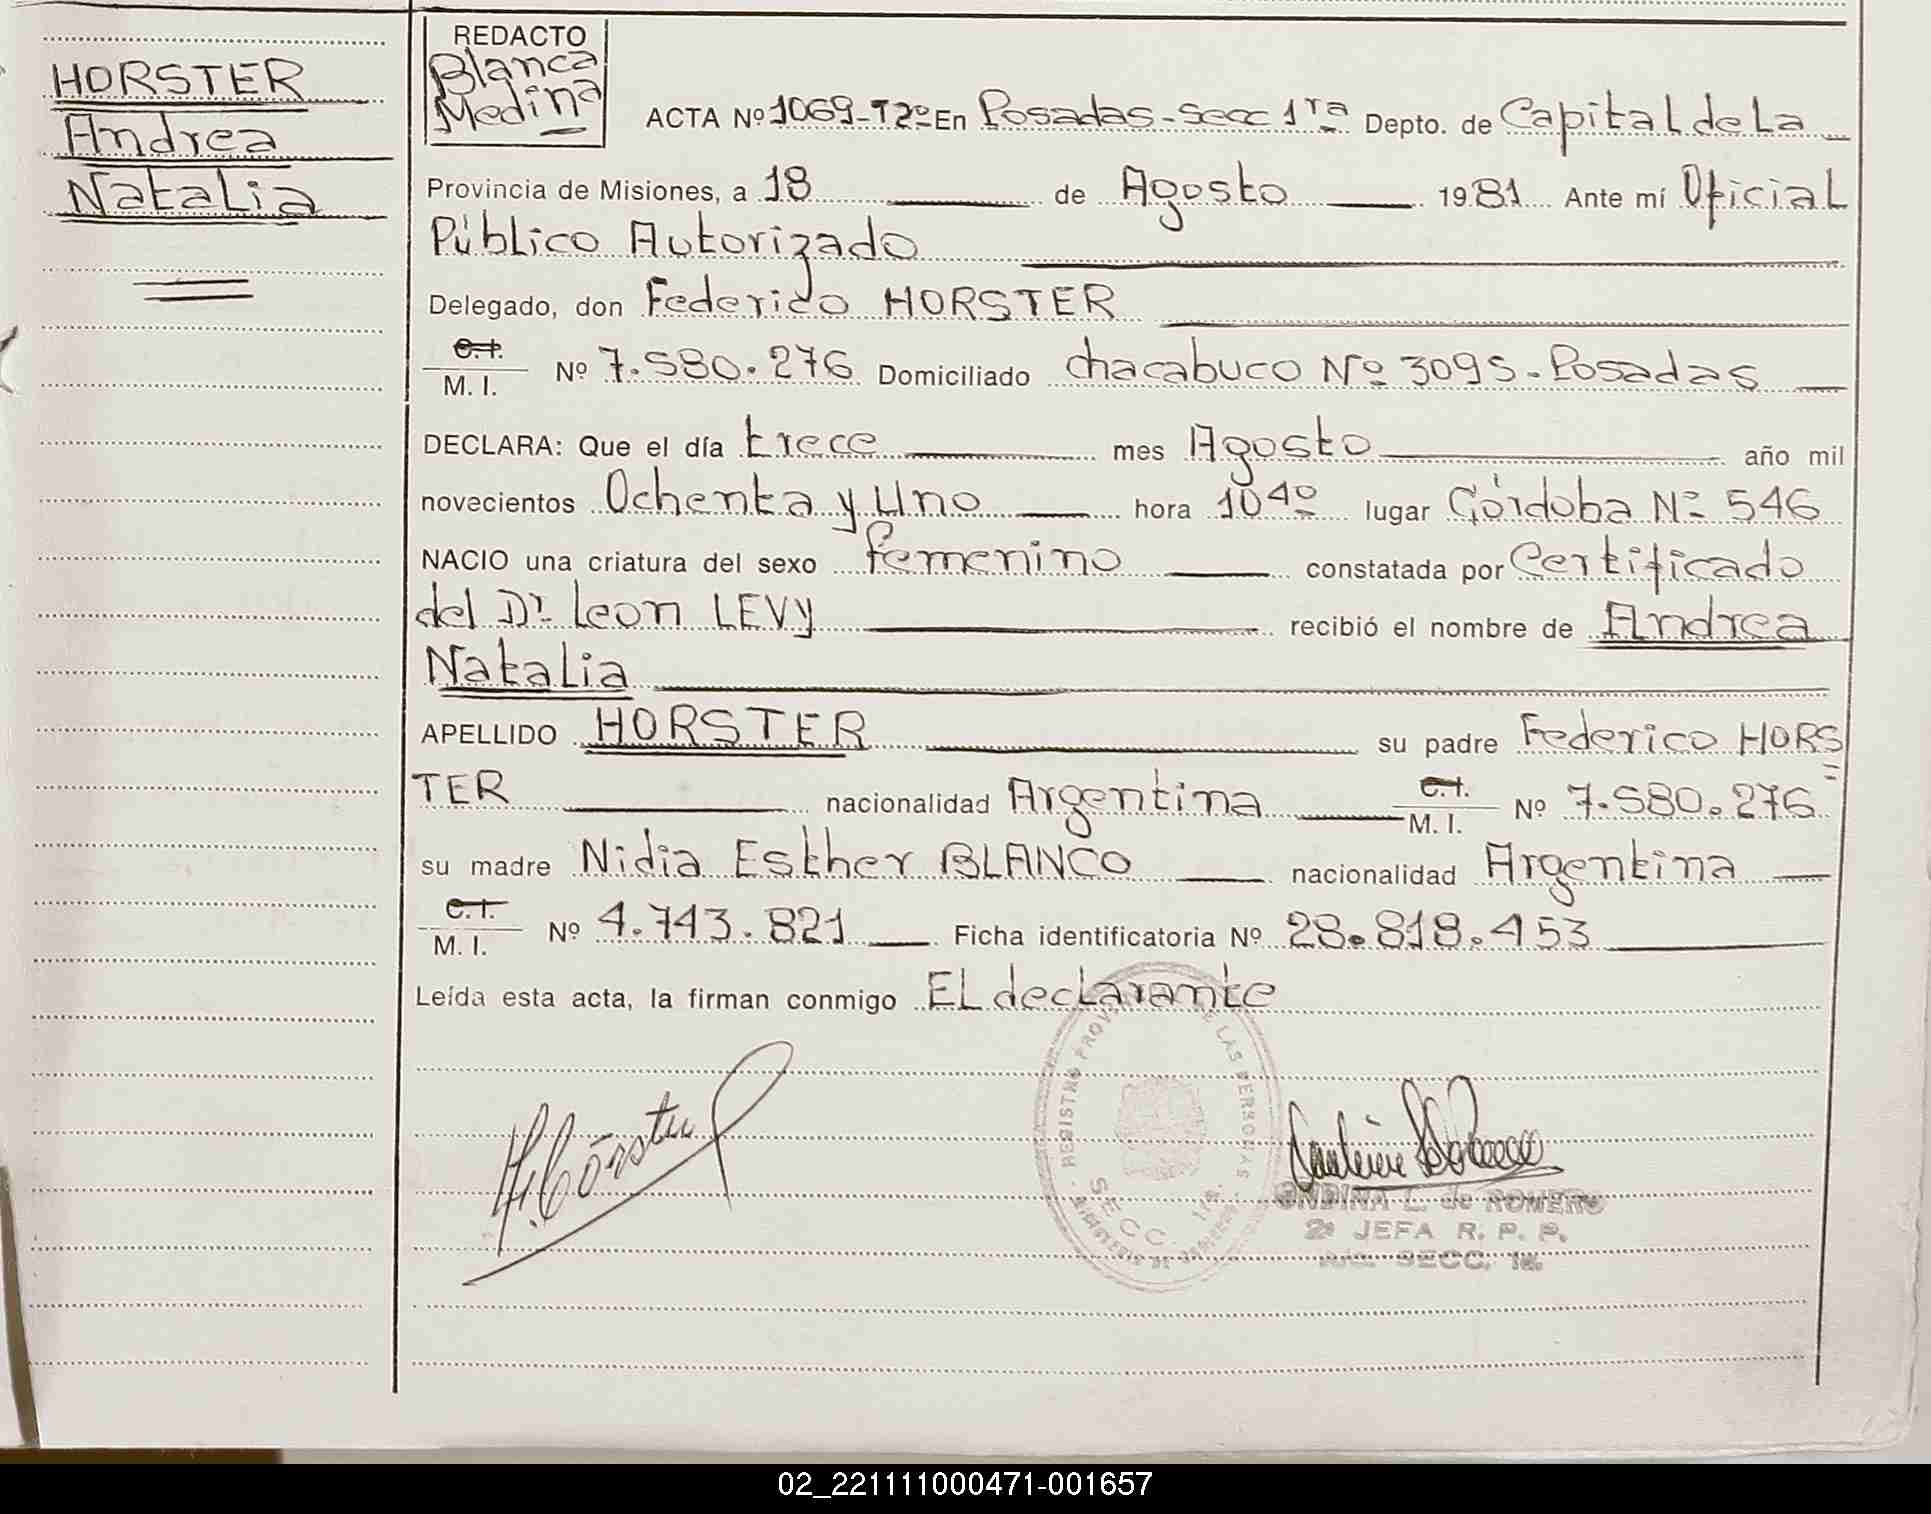 HORSTER
Andrea
Natalia
REDACTO
Blanca
Medina
ACTA Nº 1069-T2º En Posadas-Secc 1ra Depto. de Capital de La
Provincia de Misiones, a 18 de Agosto 1981 Ante mí Oficial
Público Autorizado
Delegado, don Federico HORSTER
C.I.
M. I. Nº 7.580.276 Domiciliado chacabuco Nº 3095-Posadas
DECLARA: Que el día trece mes Agosto año mil
novecientos Ochenta y Uno hora 10 40 lugar Córdoba Nº 546
NACIO una criatura del sexo femenino constatada por Certificado
del Dr. Leon LEVY recibió el nombre de Andrea
Natalia
APELLIDO HORSTER su padre Federico HORS=
TER nacionalidad Argentina C.I. M. I. Nº 7.580.276
su madre Nidia Esther BLANCO nacionalidad Argentina
C.I.
M. I. Nº 4.743.821 Ficha identificatoria Nº 28.818.453
Leída esta acta, la firman conmigo EL declarante
REGISTRO PROV DE LAS PERSONAS
SECC. 1ra.
ONDINA L. de ROMERO
2ª JEFA R. P. P.
A/C. SECC. 1a.
02_221111000471-001657